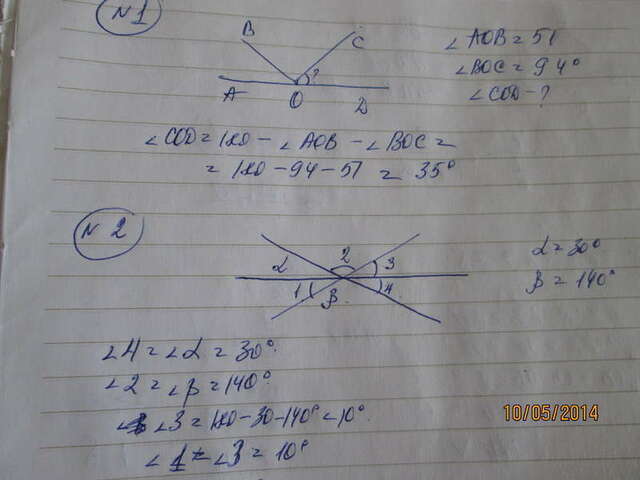 N 1
B
C
?
A
O
D
∠AOB = 51
∠BOC = 94°
∠COD - ?
∠COD = 180 - ∠AOB - ∠BOC =
= 180 - 94 - 51 = 35°
N 2
α
2
3
1
β
4
α = 30°
β = 140°
∠4 = ∠α = 30°.
∠2 = ∠β = 140°.
∠3 = 180 - 30 - 140° = 10°.
∠1 = ∠3 = 10°
10/05/2014